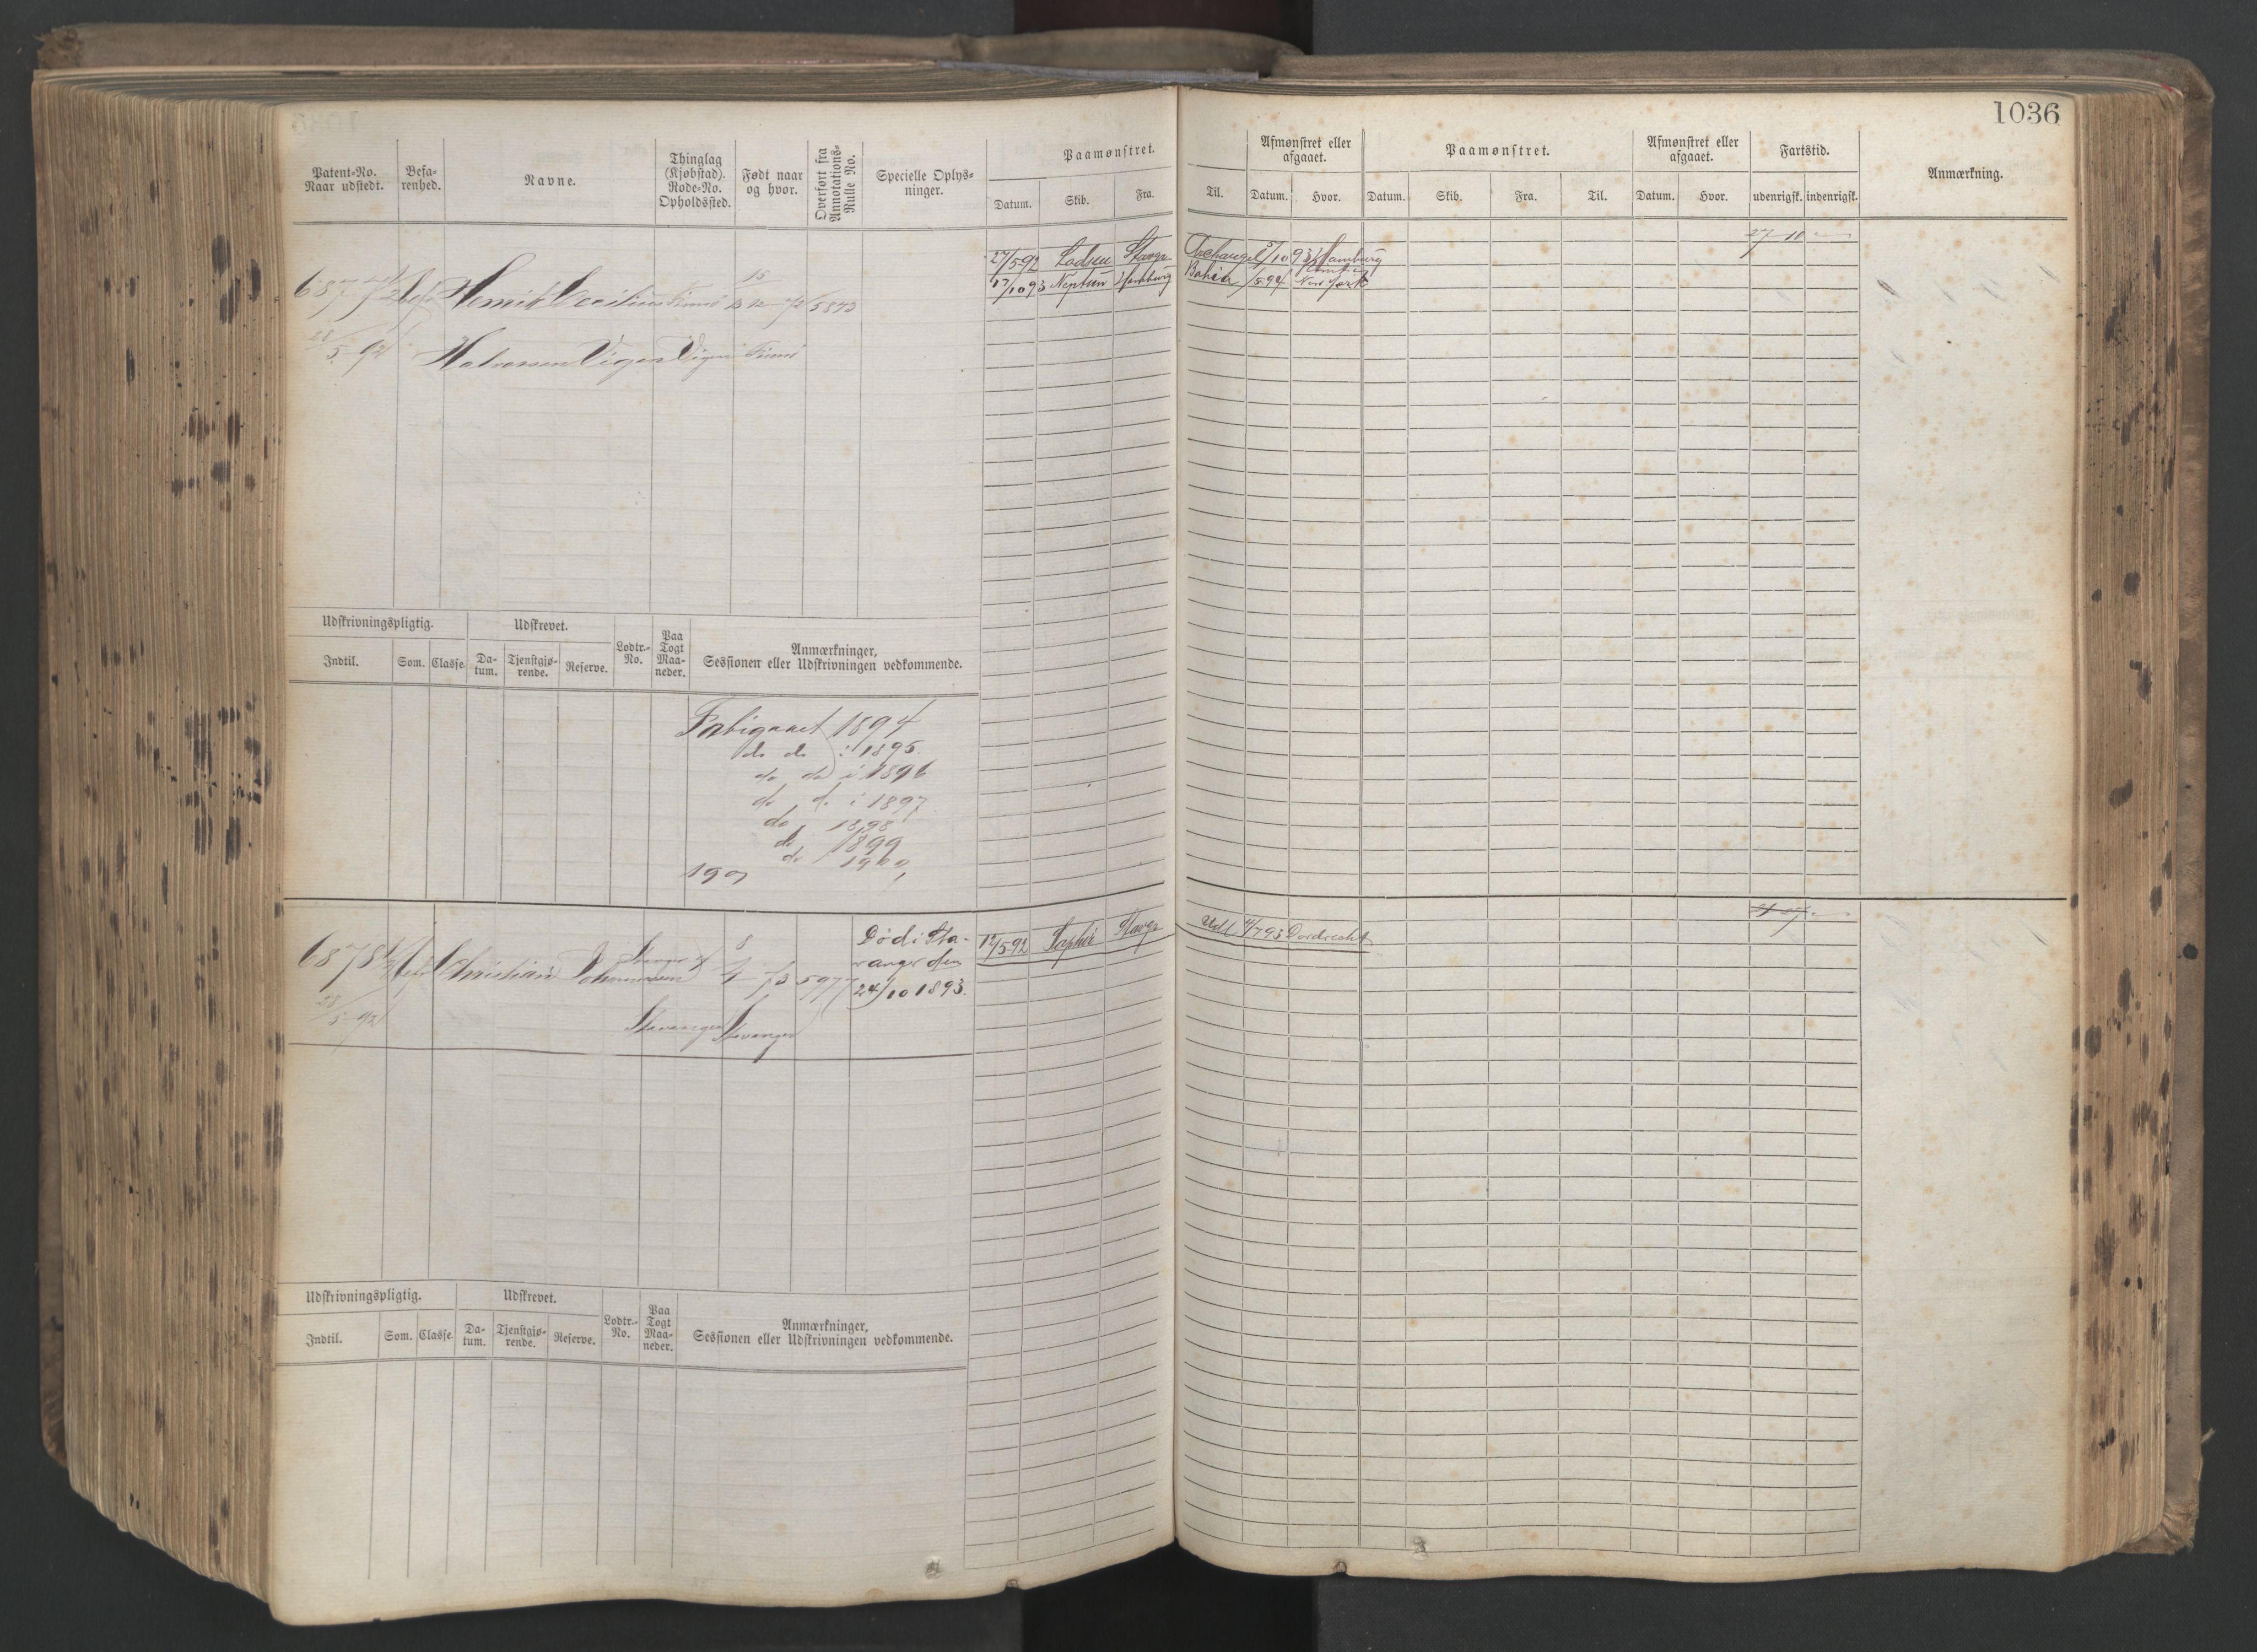 1036
Patent-No. Naar udstedt.
Befa- renhed.
Navne.
Thinglag (Kjøbstad). Rode-No. Opholdssted.
Født naar og hvor.
Overført fra Annotations- Rulle No.
Specielle Oplys- ninger.
Paamønstret.
Datum.
Skib.
Fra.
Til.
Afmønstret eller afgaaet.
Datum.
Hvor.
Paamønstret.
Datum.
Skib.
Fra.
Til.
Afmønstret eller afgaaet.
Datum.
Hvor.
Fartstid.
udenrigsk.
indenrigsk.
Anmærkning.
27/5 92 Lodsen Stavgr Archangel 5/10 93 Hamburg 27 10
17/10 93 Neptun Hamburg Bahia /5 94 New York
6877 Henrik 15 12-72 5843
28/5-92 Halvorsen Vigen
Udskrivningspligtig.
Udskrevet.
Lodtr.- No.
Paa Togt Maa- neder.
Anmærkninger, Sessionen eller Udskrivningen vedkommende.
Indtil.
Som.
Classe.
Da- tum.
Tjenstgjø- rende.
Reserve.
Forbigaaet 1894
do do i 1895
do do i 1896
do do i 1897
do 1898
do 1899
do 1900
190
6878 Christian Johannessen 8/4-73 5977
Død i Sta-
vanger den
24/10 1893.
28/5-92 Stavanger Stavanger
12/5 92 Saphir Stavgr 4/7 93 Dordrecht
Udskrivningspligtig.
Udskrevet.
Lodtr.- No.
Paa Togt Maa- neder.
Anmærkninger, Sessionen eller Udskrivningen vedkommende.
Indtil.
Som.
Classe.
Da- tum.
Tjenstgjø- rende.
Reserve.